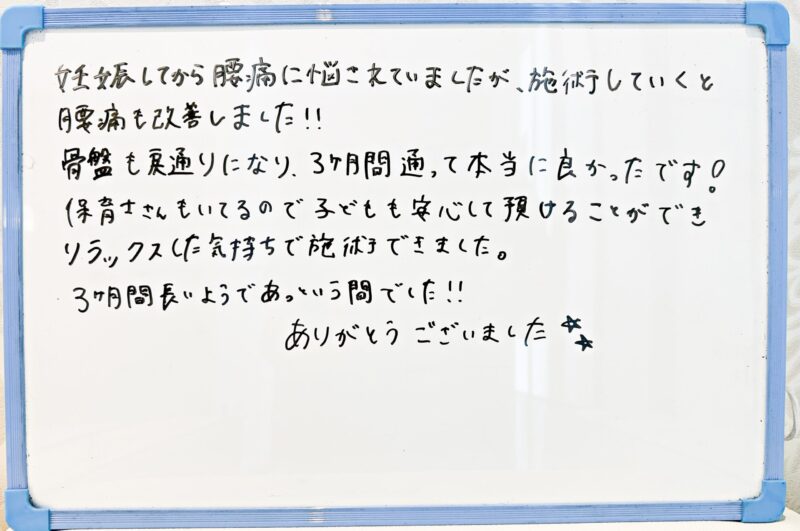 妊娠してから腰痛に悩されていましたが、施術していくと
腰痛も改善しました!!
骨盤も戻通りになり、3ヶ月間通って本当に良かったです!
保育士さんもいてるので子どもも安心して預けることができ
リラックスした気持ちで施術できました。
3ヶ月間長いようであっという間でした!!
ありがとうございました☆☆